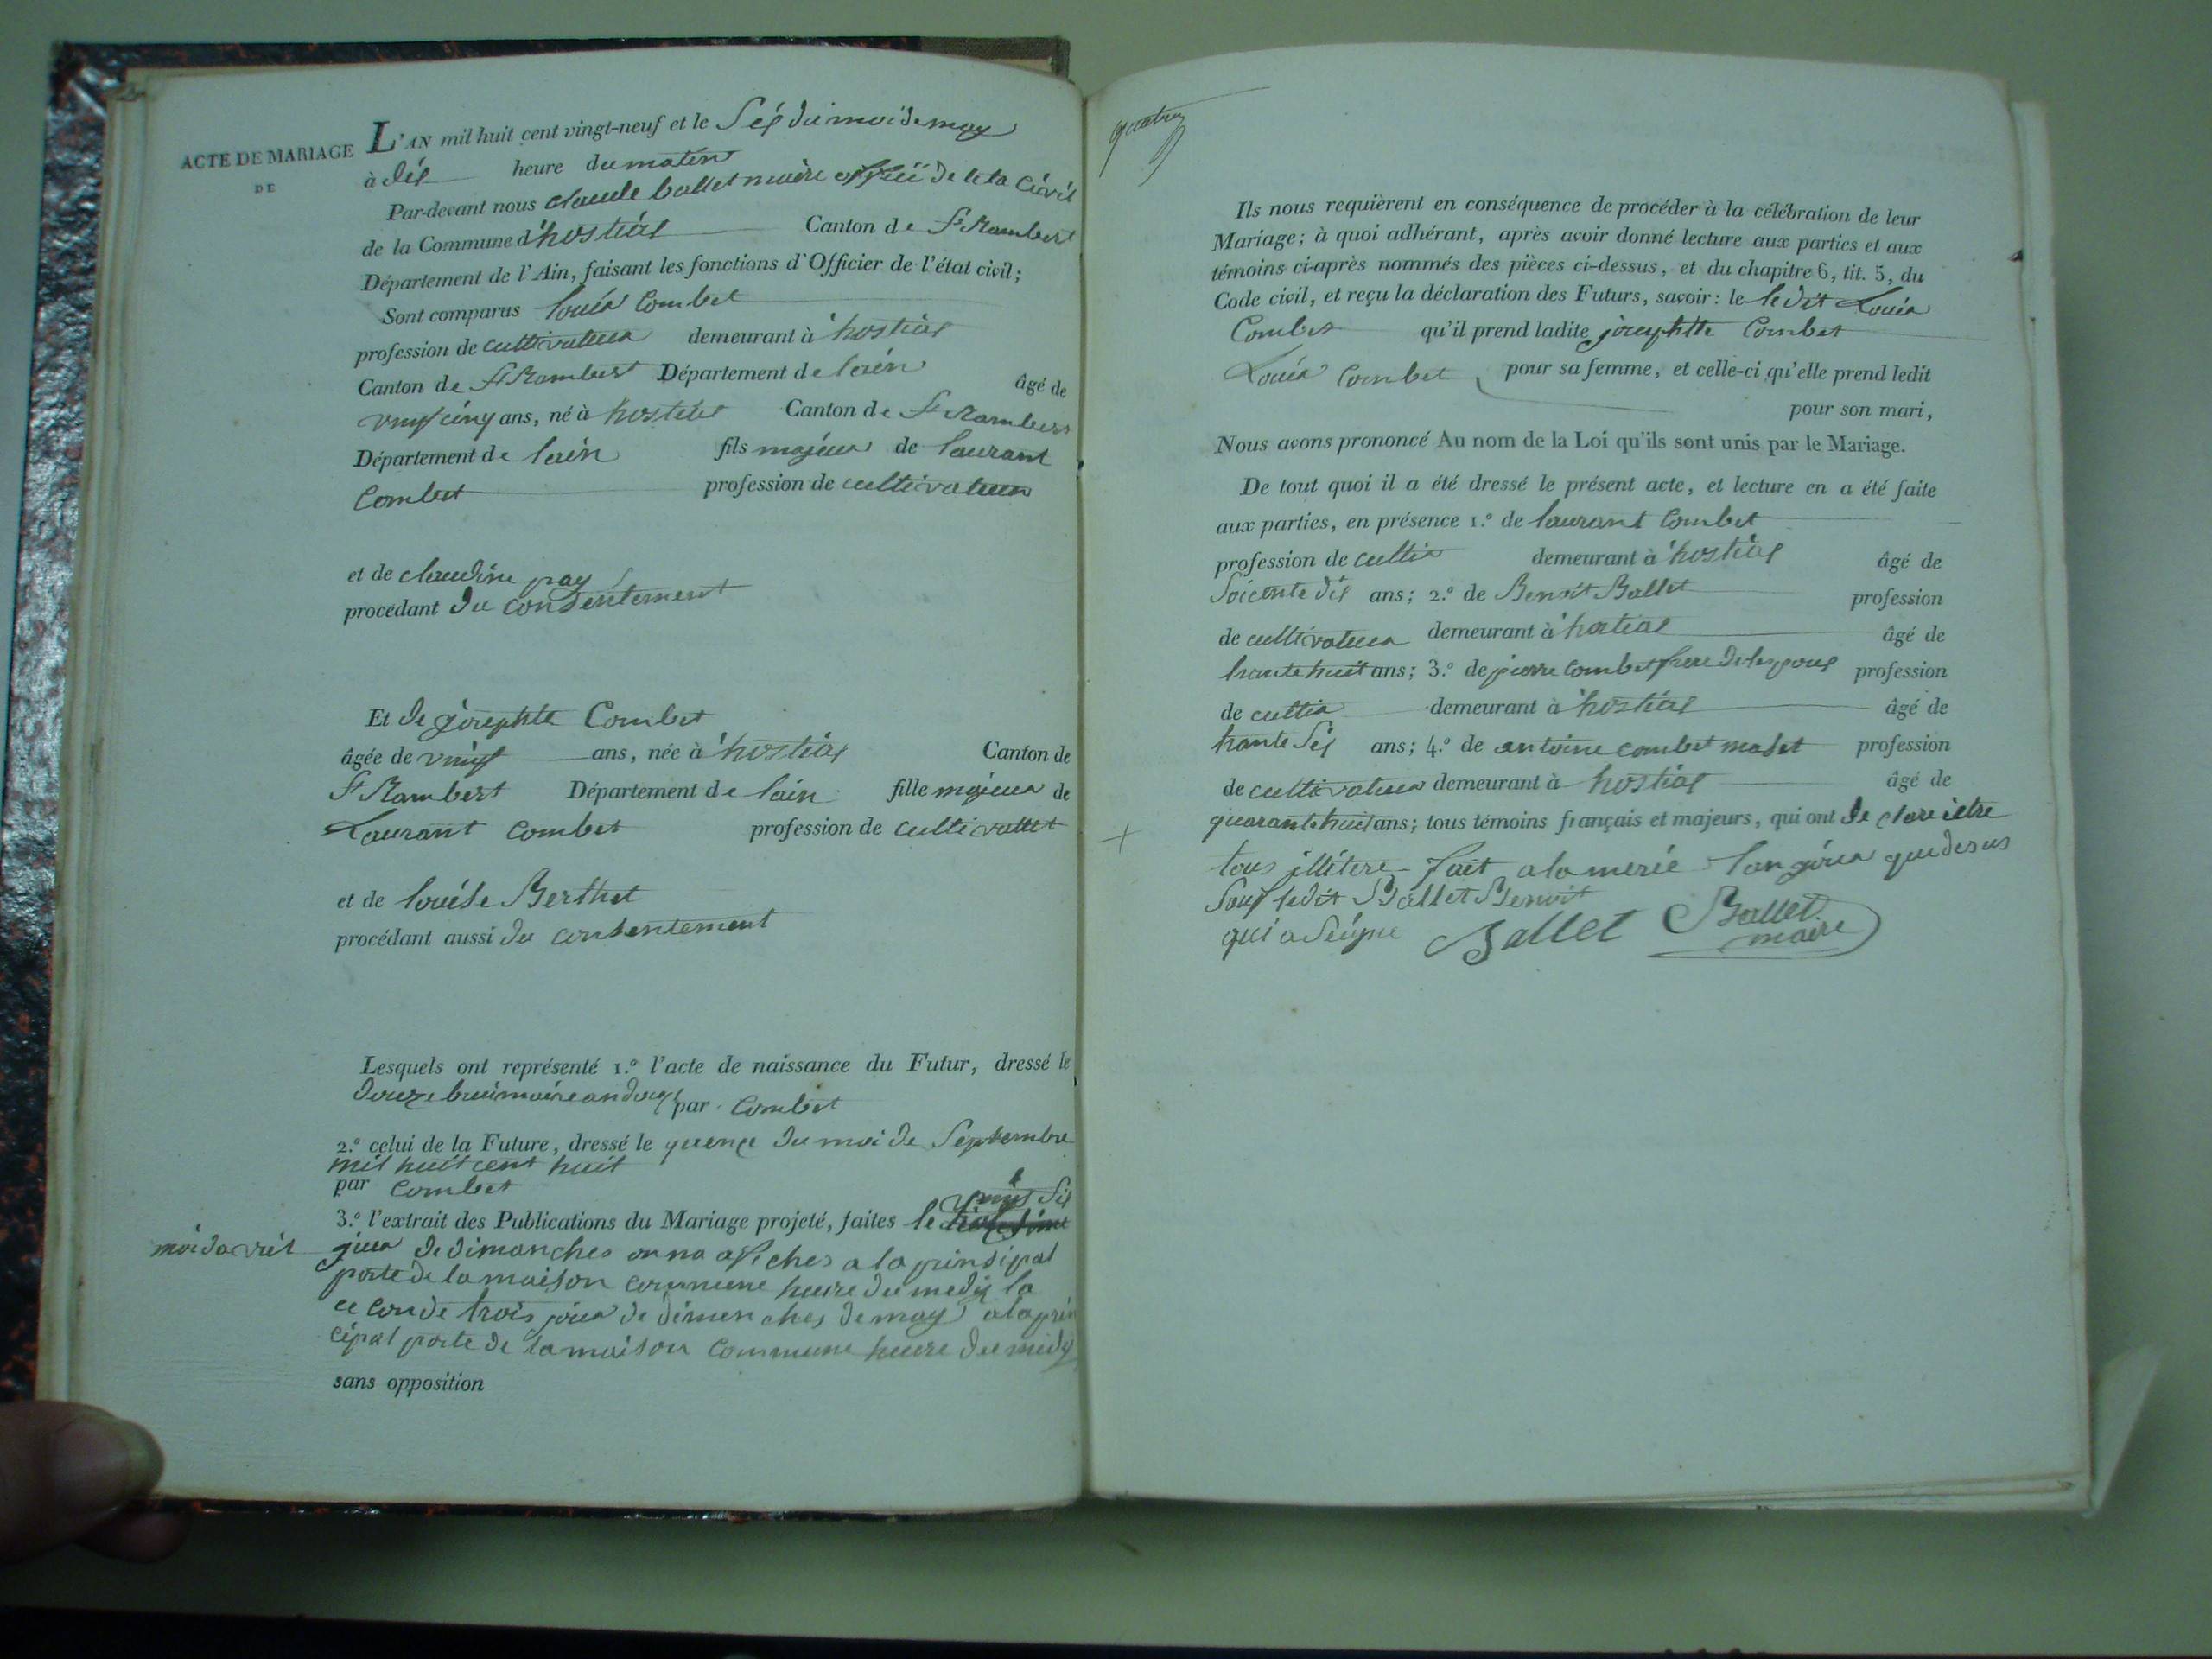 ACTE DE MARIAGE
DE
L'AN mil huit cent vingt-neuf et le Sés du moi de may
à dés heure du matin
Par-devant nous claude ballet maire de leta Civil
de la Commune d'hostias Canton de St Rambert
Département de l'Ain, faisant les fonctions d'Officier de l'état civil;
Sont comparus Louis Combet
profession de cultivateur demeurant à hostias
Canton de St Rambert Département de lain âgé de
vingt cinq ans, né à hostias Canton de St Rambert
Département de lain fils majeur de laurant
Combet profession de cultivateur
et de claudine pay
procédant du consentement
Et de josephte Combet
âgée de vingt ans, née à hostias Canton de
St Rambert Département de lain fille majeur de
Laurant Combet profession de
et de louise Berthet
procédant aussi du consentement
Lesquels ont représenté 1.º l'acte de naissance du Futur, dressé le
douze an par Combet
2.º celui de la Future, dressé le du moi de Septembre
mil huit cent huit
par Combet
vingt Sis
3.º l'extrait des Publications du Mariage projeté, faites le
moi davril
jour de dimanches on na afiches a la prinsipal
porte de la maison commune heure du medy la
ceconde trois jour de dimenches de may a la prin
cipal porte de la maison commune heure du midy
sans opposition
Ils nous requièrent en conséquence de procéder à la célébration de leur
Mariage; à quoi adhérant, après avoir donné lecture aux parties et aux
témoins ci-après nommés des pièces ci-dessus, et du chapitre 6, tit. 5, du
Code civil, et reçu la déclaration des Futurs, savoir: le ledit Louis
Combet qu'il prend ladite josephtte Combet
Louis Combet pour sa femme, et celle-ci qu'elle prend ledit
pour son mari,
Nous avons prononcé Au nom de la Loi qu'ils sont unis par le Mariage.
De tout quoi il a été dressé le présent acte, et lecture en a été faite
aux parties, en présence 1.º de laurant Combet
profession de cultiv demeurant à hostias âgé de
Soicente dis ans; 2.º de Benoit Ballet profession
de cultivateur demeurant à hostias âgé de
trante huit ans; 3.º de pierre Combet frere de lespous profession
de cultiv demeurant à hostias âgé de
trante Sis ans; 4.º de antoine combet profession
de cultivateur demeurant à hostias âgé de
quarante huit ans; tous témoins français et majeurs, qui ont de clare
tous illitere fait a la merie lan jour que desus
Sauf ledit Ballet Benoit
qui a Seigne Ballet Ballet
maire